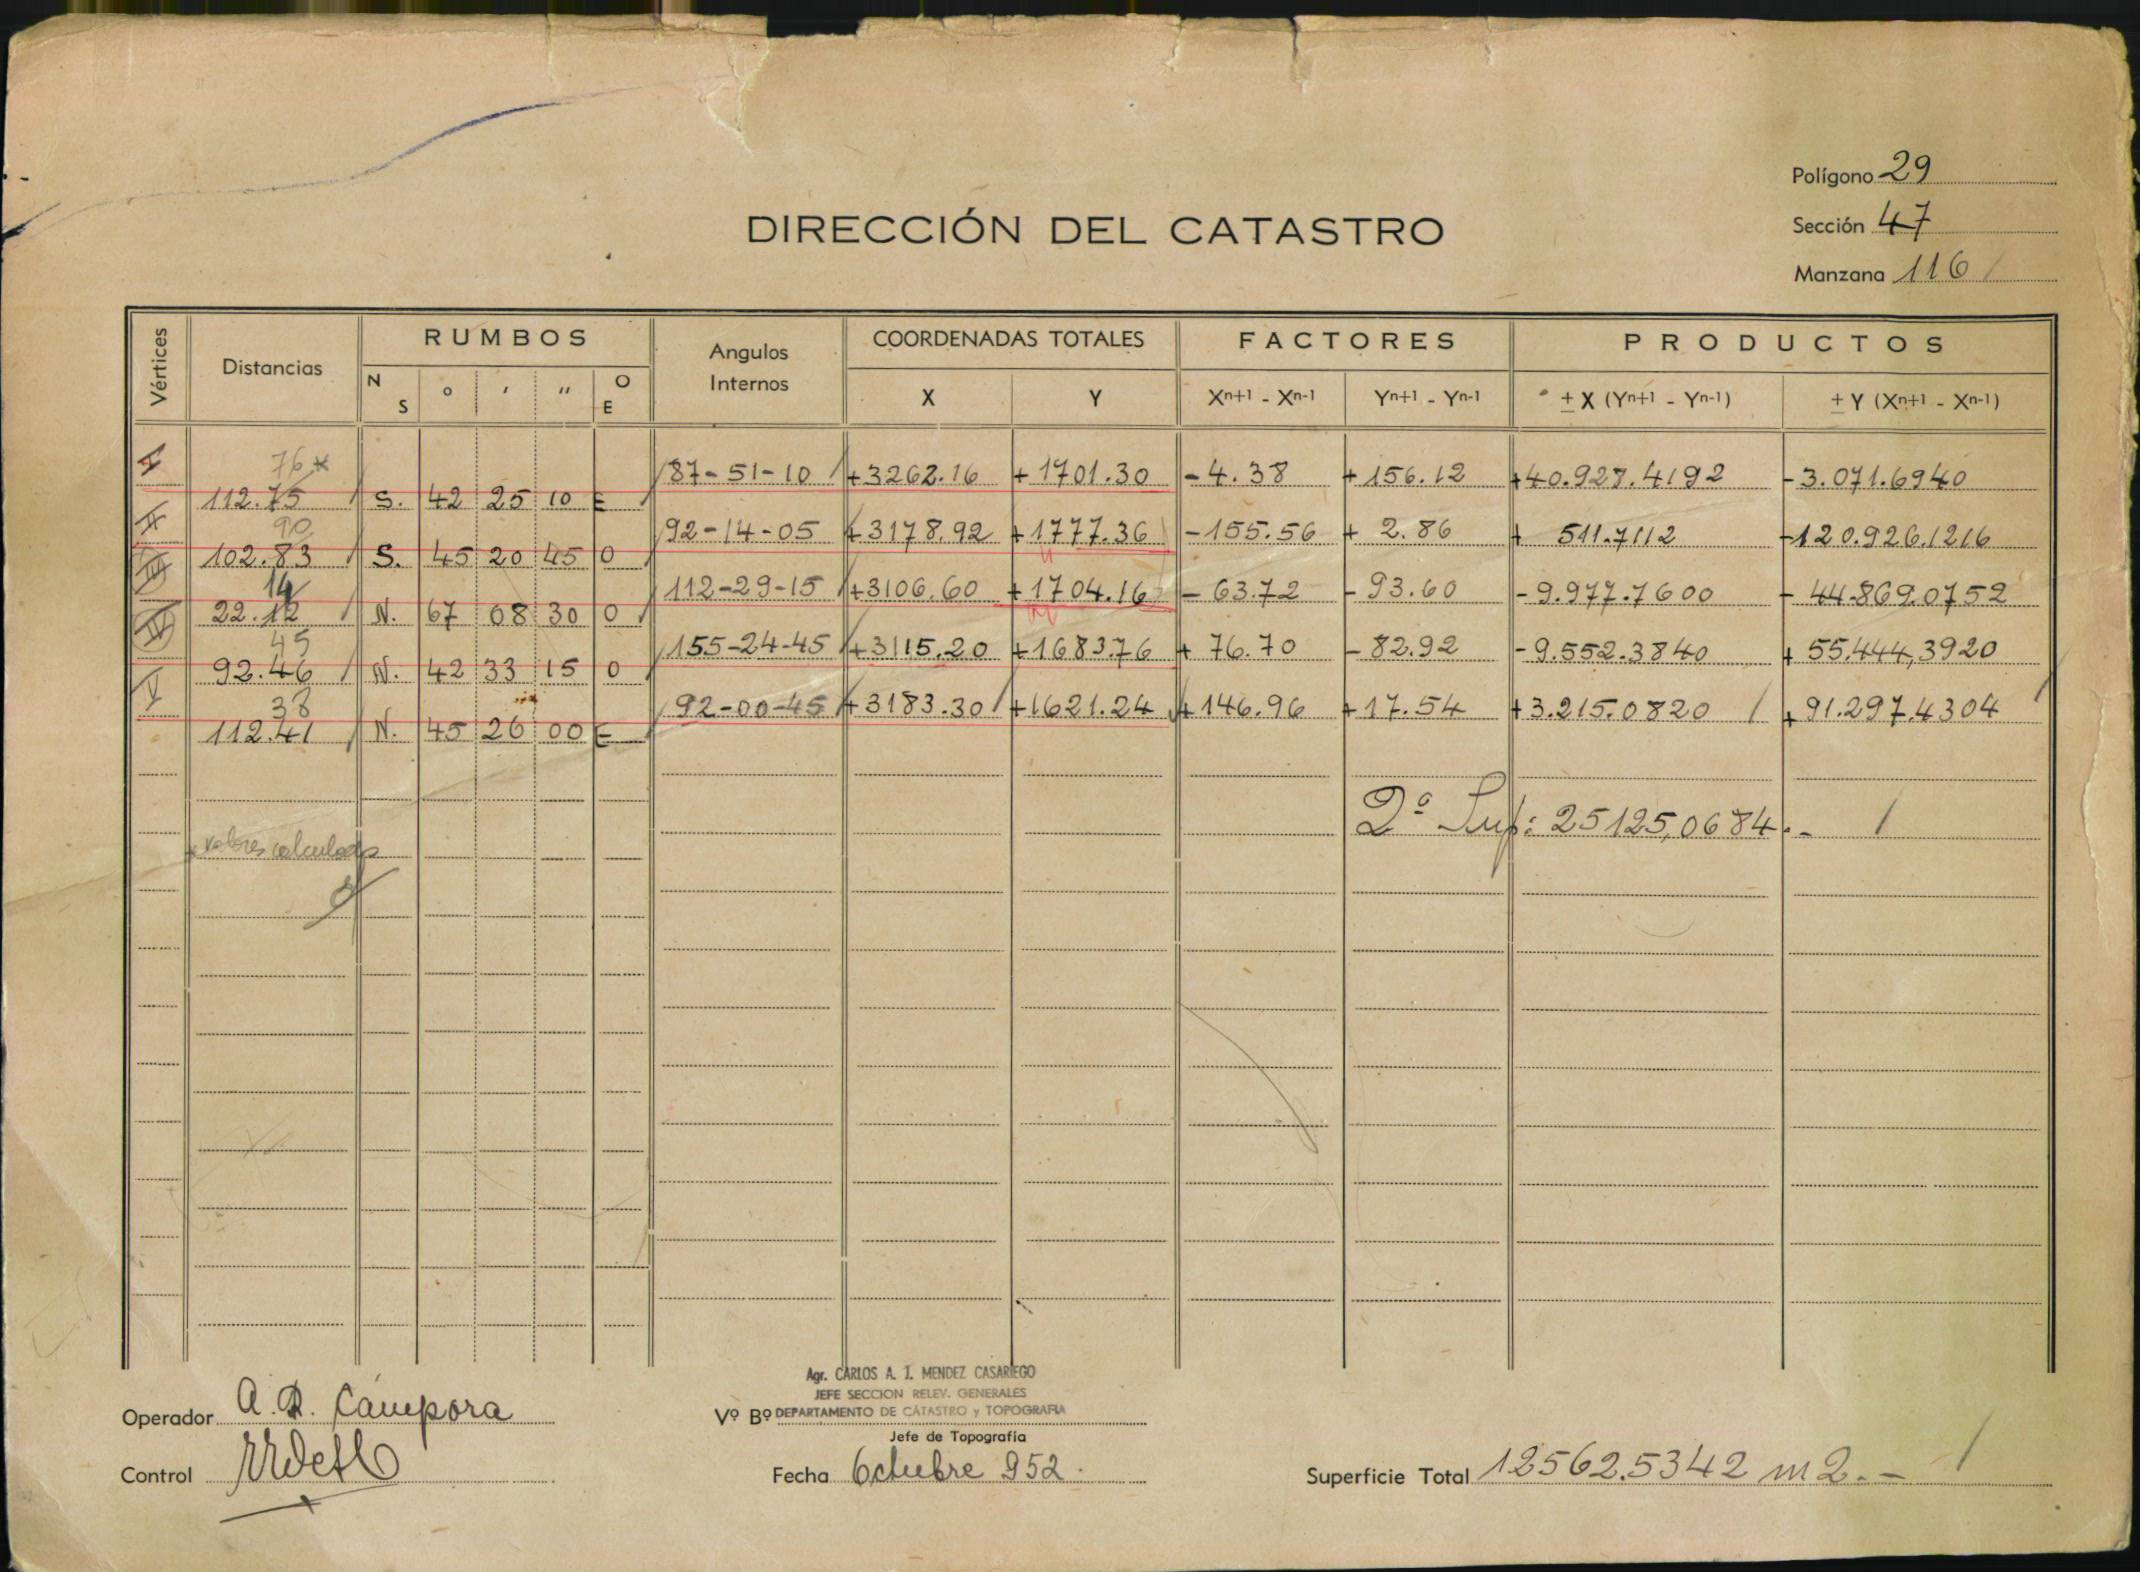 Polígono 29
DIRECCIÓN DEL CATASTRO
Sección 47
Manzana 116
Vértices Distancias RUMBOS Angulos Internos COORDENADAS TOTALES FACTORES PRODUCTOS
N S ° ' " O E X Y Xⁿ⁺¹ - Xⁿ⁻¹ Yⁿ⁺¹ - Yⁿ⁻¹ ± X (Yⁿ⁺¹ - Yⁿ⁻¹) ± Y (Xⁿ⁺¹ - Xⁿ⁻¹)
I 76* 87-51-10 +3262.16 +1701.30 -4.38 +156.12 +40.928.4192 -3.071.6940
112.75 S. 42 25 10 E
II 90 92-14-05 +3178.92 +1777.36 -155.56 + 2.86 + 511.7112 -120.926.1216
102.83 S. 45 20 45 O
III 14 112-29-15 +3106.60 +1704.16 - 63.72 - 93.60 -9.977.7600 - 44.869.0752
22.12 N. 67 08 30 O
IV 45 155-24-45 +3115.20 +1683.76 + 76.70 - 82.92 -9.552.3840 + 55.444,3920
92.46 N. 42 33 15 O
V 38 92-00-45 +3183.30 +1621.24 +146.96 +17.54 +3.215.0820 +91.297.4304
112.41 N. 45 26 00 E
2ª Sup: 25125,0684.-
* valores calculados
Agr. CARLOS A. I. MENDEZ CASARIEGO
JEFE SECCION RELEV. GENERALES
Operador A. R. Cámpora Vº Bº DEPARTAMENTO DE CATASTRO y TOPOGRAFIA
Jefe de Topografía
Control Fecha Octubre 952. Superficie Total 12562.5342 m2.-